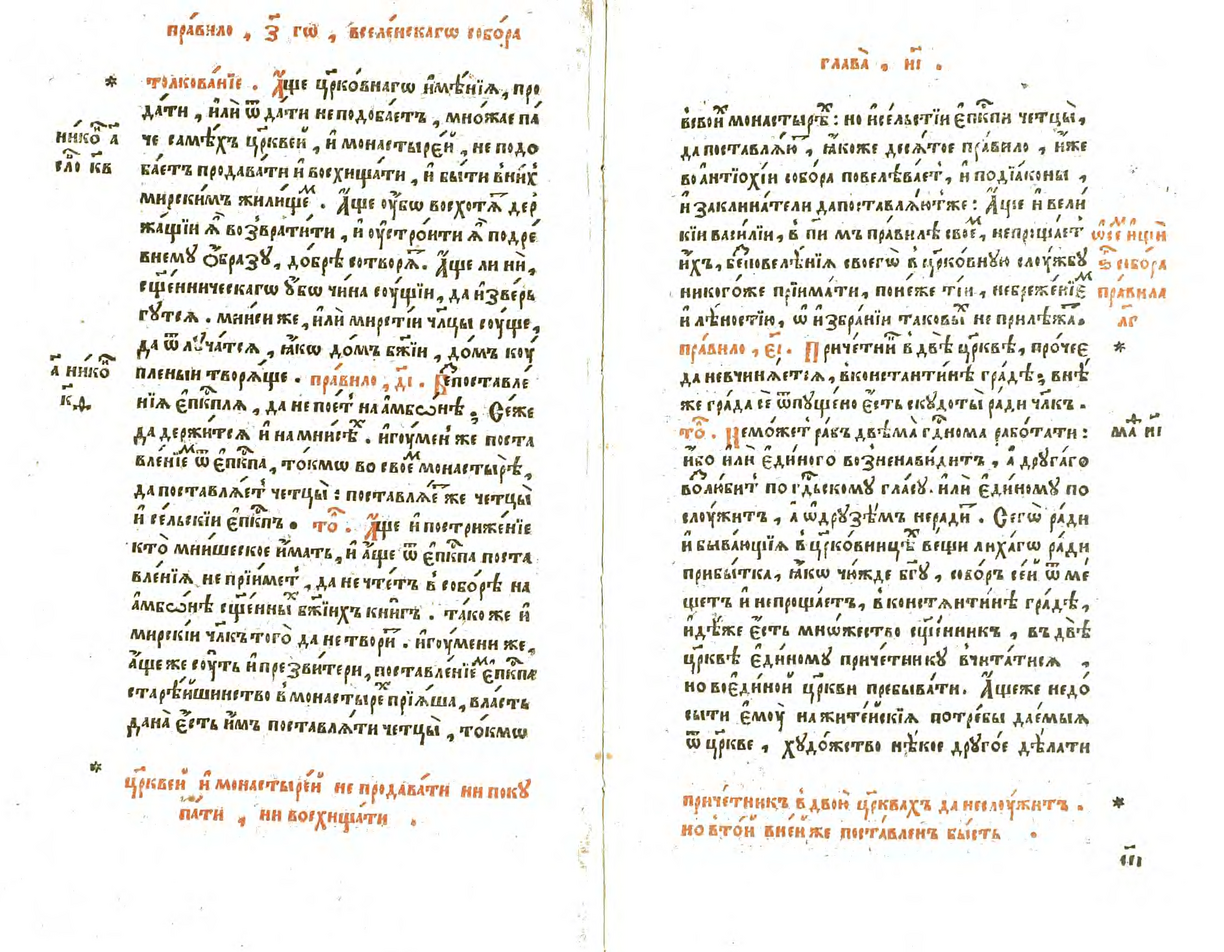 пра́вило , з҃ гѡ , вселе́нскагѡ собо́ра
* толкова́нїе . А҆́ще цр҃ко́внагѡ и҆мѣ́нїѧ , про
да́ти , и҆лѝ ѿда́ти неподоба́етъ , мно́жае па́
нико҇ а҃
че самѣ́хъ цр҃кве́й , и҆ монастыре́й , не подо
сло҇ к҃в
ба́етъ продава́ти и҆ восхища́ти , и҆ бы́ти вни́х
мирски́мъ жили́щем . А҆́ще оу҆́бѡ восхотѧ́т дер
жа́щїи ѧ҆̀ возврати́ти , и҆ оу҆стро́ити ѧ҆̀ подре́
внему ѻ҆́бразу , до́брѣ сотворѧ́т . А҆́ще ли нѝ ,
сщ҃е́нническагѡ ᲂу҆́бѡ чина сᲂу́щїи , да и҆зве́рь
гутсѧ . мнисиже , и҆лѝ мирсті́и чл҃цы сᲂу́ще ,
да ѿлуча́тсѧ , ꙗ҆́кѡ до́мъ бж҃їи , до́мъ кᲂу́
а҃ нико҇
пленыи творѧ́ще . пра́вило , д҃і . Беспоставле́
к҃д
нїѧ є҆п҇кплѧ , да не пое́т на а҆мбѡ́нѣ ; Се́же
да держи́тсѧ и҆ на мни́сѣх . и҆гоу́мен же поста
вле́нїем ѿ є҆п҇кпа , то́кмѡ во свое́м монастырѣ̀ ,
да поставлѧ́ет четцы̀ : поставлѧ́ет же четцы̀
и҆ се́льскїи є҆п҇кпъ . то҇ . А҆́ще и҆ постриже́нїе
кто̀ мни́шеское и҆́мать , и҆ а҆́ще ѿ є҆п҇кпа поста
вле́нїѧ не прїи́мет , да не чте́тъ в собо́рѣ на
а҆мбѡ́нѣ сщ҃е́нных бж҃їихъ кни́гъ . та́ко же и҆
мирскі́и чл҃къ того̀ да не твори́т . и҆гоу́мени же ,
а҆́ще же соу́ть и҆ презви́тери , поставле́нїем є҆п҇кпа
старѣ́йшинство в монастырех прїѧ́ша , вла́сть
дана̀ є҆́сть и҆̀мъ поставлѧ́ти четцы̀ , то́кмѡ
* цр҃кве́й и҆ монастыре́й не продава́ти ни поку
па́ти , ни восхища́ти .
глава̀ . и҃і .
всвои́х монастырѣ́х : но и҆ се́льстїи є҆п҇кпи четцы̀ ,
да поставлѧ́ют , ꙗ҆́коже десѧ́тое пра́вило , и҆́же
во а҆нтїохі́и собо́ра повелѣва́ет , и҆ подїа́коны ,
и҆ заклина́тели да поставлѧ́ютже : А҆́ще и҆ вели́
кїи васи́лїи , в п҃и мъ пра́вилѣ свое́м , непроща́ет
ѡ҆ сем и҆щи́
и҆̀хъ , бесповелѣ́нїѧ своегѡ̀ в цр҃ко́вную слоу́жбу
ѕ҃ собо́ра
никого́же прїима́ти , поне́же ті́и , небреже́нїем
пра́вила
и҆ лѣ́ностїю , ѡ҆ и҆збра́нїи таковы́х не прилѣжа́т .
л҃г
пра́вило , є҃і . Приче́тник в двѣ̀ цр҃квѣ , про́чее *
да невчинѧ́етсѧ , вконстанти́нѣ гра́дѣ ; внѣ́
же гра́да сѐ ѿпуще́но є҆́сть ску́доты ра́ди чл҃къ .
то҇ . Немо́жет ра́бъ двѣма̀ гд҇нома рабо́тати :
ма҇ и҃і
и҆́бо и҆лѝ є҆ди́ного возненави́дитъ , а҆ друга́го
возлю́бит по гд҇ьскому гла́су . и҆лѝ є҆ди́ному по
слоу́житъ , а҆ ѡ҆ дру́зѣмъ неради́т . Сегѡ̀ ра́ди
и҆ быва́ющїѧ в цр҃ко́вницѣх вещи лиха́гѡ ра́ди
прибы́тка , ꙗ҆́кѡ чю́жде бг҃у , собо́ръ се́й ѿме́
щетъ и҆ непроща́етъ , вконстѧнти́нѣ гра́дѣ ,
и҆дѣ́же є҆́сть мнѡ́жество сщ҃е́нникъ , въ двѣ̀
цр҃квѣ є҆ди́ному приче́тнику вчита́тисѧ ,
но во є҆ди́ной цр҃кви пребыва́ти . А҆́щеже недо́
сыти є҆моу̀ на жите́йскїѧ потре́бы дае́мыѧ
ѿ цр҃кве , худо́жество нѣ́кое друго́е дѣ́лати
приче́тникъ в двою̀ цр҃квахъ да неслоу́житъ . *
но в то́й вне́йже поста́вленъ бы́сть .